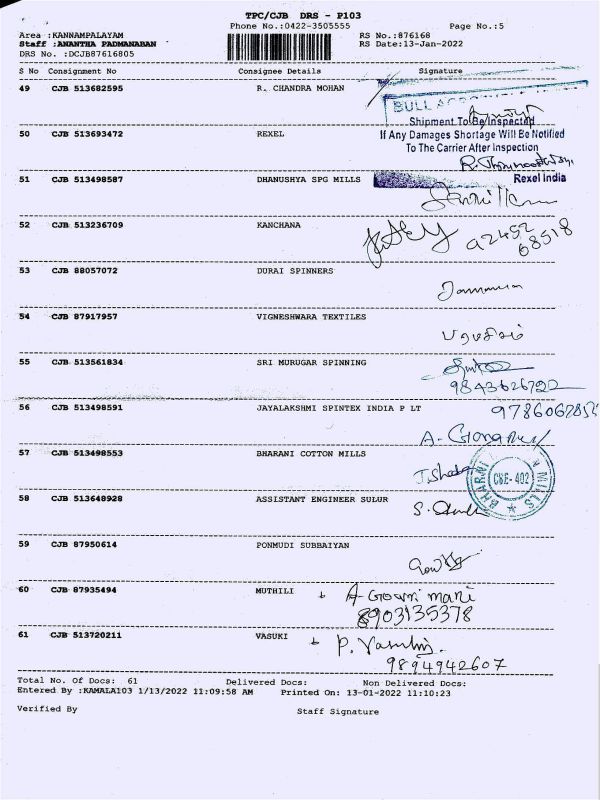 TPC/CJB DRS - P103
Phone No.:0422-3505555 Page No.:5
Area :KANNAMPALAYAM RS No.:876168
Staff :ANANTHA PADMANABAN RS Date:13-Jan-2022
DRS No. :DCJB87616805
S No Consignment No Consignee Details Signature
49 CJB 513682595 R. CHANDRA MOHAN
Shipment To Be Inspected
50 CJB 513693472 REXEL If Any Damages Shortage Will Be Notified
To The Carrier After Inspection
51 CJB 513498587 DHANUSHYA SPG MILLS Rexel India
52 CJB 513236709 KANCHANA
92452
68518
53 CJB 88057072 DURAI SPINNERS
54 CJB 87917957 VIGNESHWARA TEXTILES
55 CJB 513561834 SRI MURUGAR SPINNING
9843626722
56 CJB 513498591 JAYALAKSHMI SPINTEX INDIA P LT
57 CJB 513498553 BHARANI COTTON MILLS
BHARANI MILLS CBE-402
58 CJB 513648928 ASSISTANT ENGINEER SULUR
59 CJB 87950614 PONMUDI SUBBAIYAN
60 CJB 87935494 MUTHILI A Gowri mani
8903135378
61 CJB 513720211 VASUKI
9894942607
Total No. Of Docs: 61 Delivered Docs: Non Delivered Docs:
Entered By :KAMALA103 1/13/2022 11:09:58 AM Printed On: 13-01-2022 11:10:23
Verified By Staff Signature